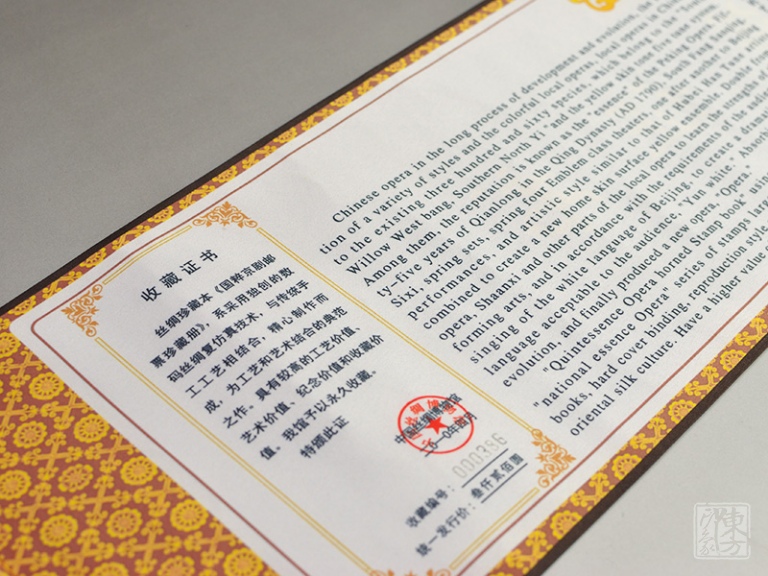 收藏证书
丝绸珍藏本《国粹京剧邮
票珍藏册》，系采用独创的数
码丝绸复仿真技术，与传统手
工工艺相结合，精心制作而
成，为工艺和艺术结合的典范
之作。具有较高的工艺价值、
艺术价值、纪念价值和收藏价
值。我馆予以永久收藏。
特颁此证
中国丝绸博物馆
二〇一〇年四月
收藏编号：000386
统一发行价：叁仟贰佰圆
Chinese opera in the long process of development and evolution, the
tion of a variety of styles and the colorful local operas, local opera in China
to the existing three hundred and sixty species, which belong to the "four
Willow West bang, Southern North Yi" and the yellow skin tone five tune system
Among them, the reputation is known as the "essence" of the Peking Opera. Fif-
ty-five years of Qianlong in the Qing Dynasty (AD 1790), South Fang Sanqing,
Sixi, spring sets, spring four Emblem class theaters, one after another to Beijing
performances, and artistic style similar to that of Hubei Han Tune artis
combined to create a new home, skin surface yellow ensemble. Double fus
opera, Shaanxi and other parts of the local opera to learn the strengths of
forming arts, and in accordance with the requirements of the aud
singing of the white language of Beijing, to create a dram
language acceptable to the audience, "Yun white." Absorbi
evolution, and finally produced a new opera, "Opera."
"Quintessence Opera horned Stamp book" using
"national essence Opera" series of stamps larg
books, hard cover binding, reproduction style
oriental silk culture. Have a higher value o
東方